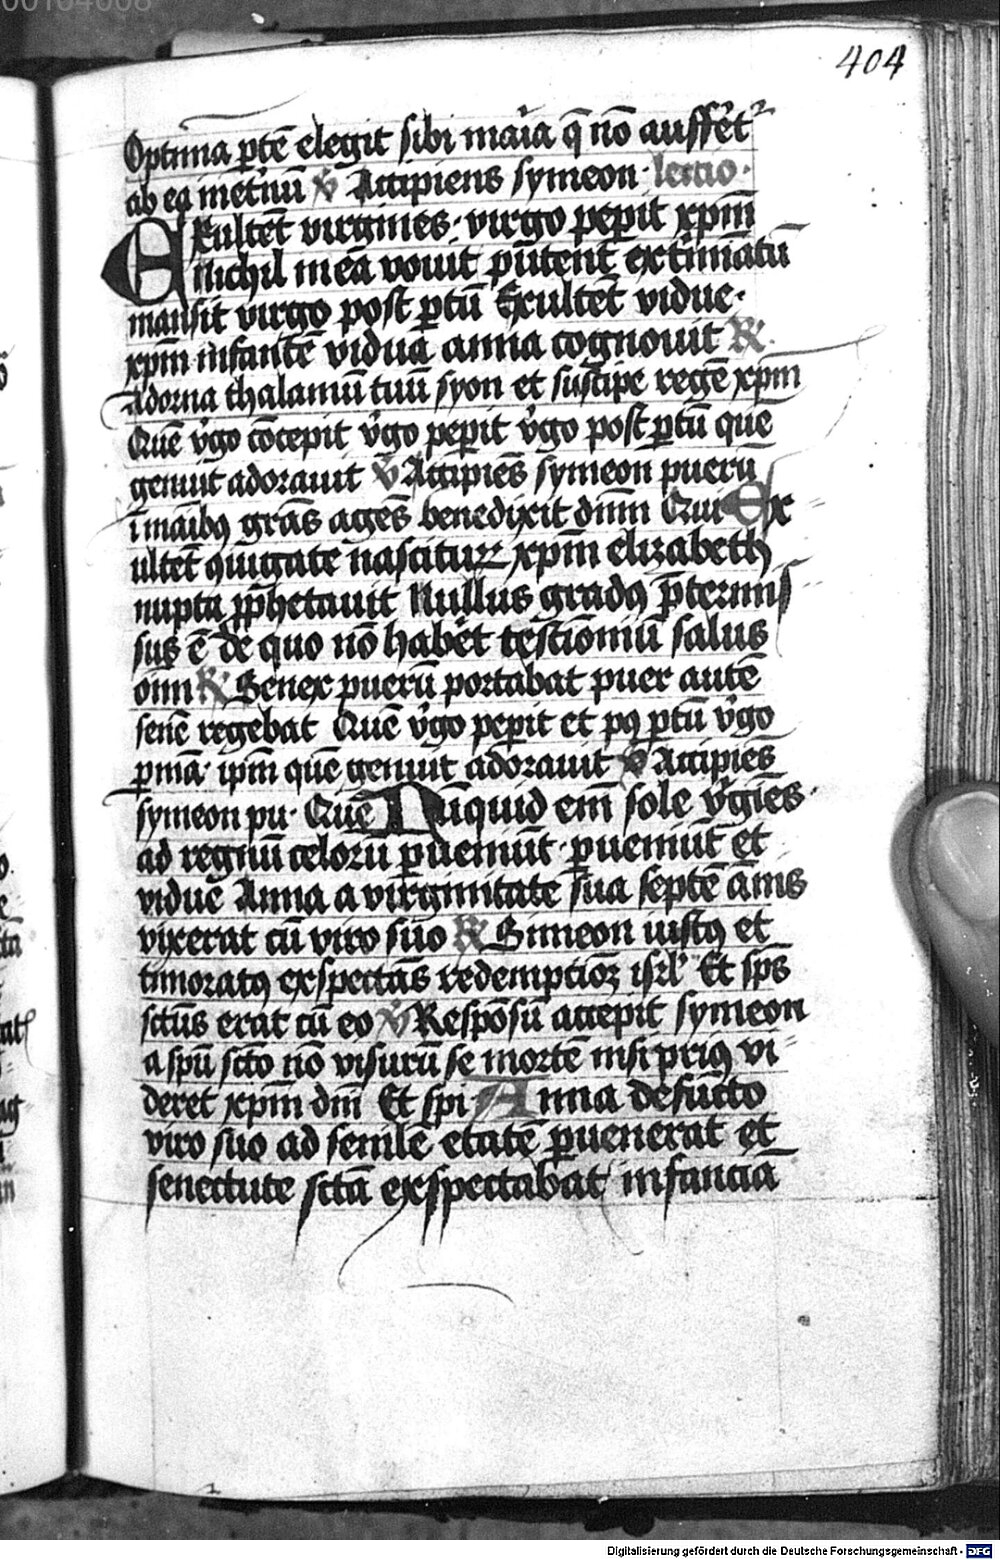 404
Optima p̄tē elegit sibi maria q̄ nō auffert᷑
ab ea inet̾nū ℣ Accipiens symeon lectio
Exultēt virgines virgo pepit xp̄m
nichil mēa vouit pūtent extimatū
mansit virgo post p̄tū Exultēt vidue
xp̄m infantē vidua anna cognouit ℟
Adorna thalamū tuū syon et suscipe regē xp̄m
Quē v̾go cōcepit v̾go pepit v̾go post p̄tū quē
genuit adorauit ℣ Accipiēs symeon puerū
ī maībꝯ grās agēs benedixit dn̄m Qui Ex
ultēt ꝯiugate nascituꝝ xp̄m elizabeth
nupta ꝓphetauit Nullus gradꝯ p̄termis
sus ē de quo nō habet testioniū salus
oīm ℟ Senex puerū portabat puer autē
senē regebat Quē v̾go pepit et pꝯ p̄tū v̾go
ꝑmā ipm̄ quē genuit adorauit ℣ Accipiēs
symeon pu Quē Nūquid em̄ sole v̾gīes
ad regnū celorū ꝑueniūt ꝑueniūt et
vidue Anna a virginitate sua septē annis
vixerat cū viro suo ℟ Simeon iustꝯ et
timoratꝯ exspectās redemptioꝫ isrl̄ Et sp̄s
sctūs erat cū eo ℣ Respōsū accepit symeon
a spū sctō nō visurū se mortē nisi priꝯ vi
deret xp̄m dn̄i Et spi Anna defūcto
viro suo ad senilē etatē ꝑuenerat et
senectute sctā exspectabat infanciā
Digitalisierung gefördert durch die Deutsche Forschungsgemeinschaft - DFG